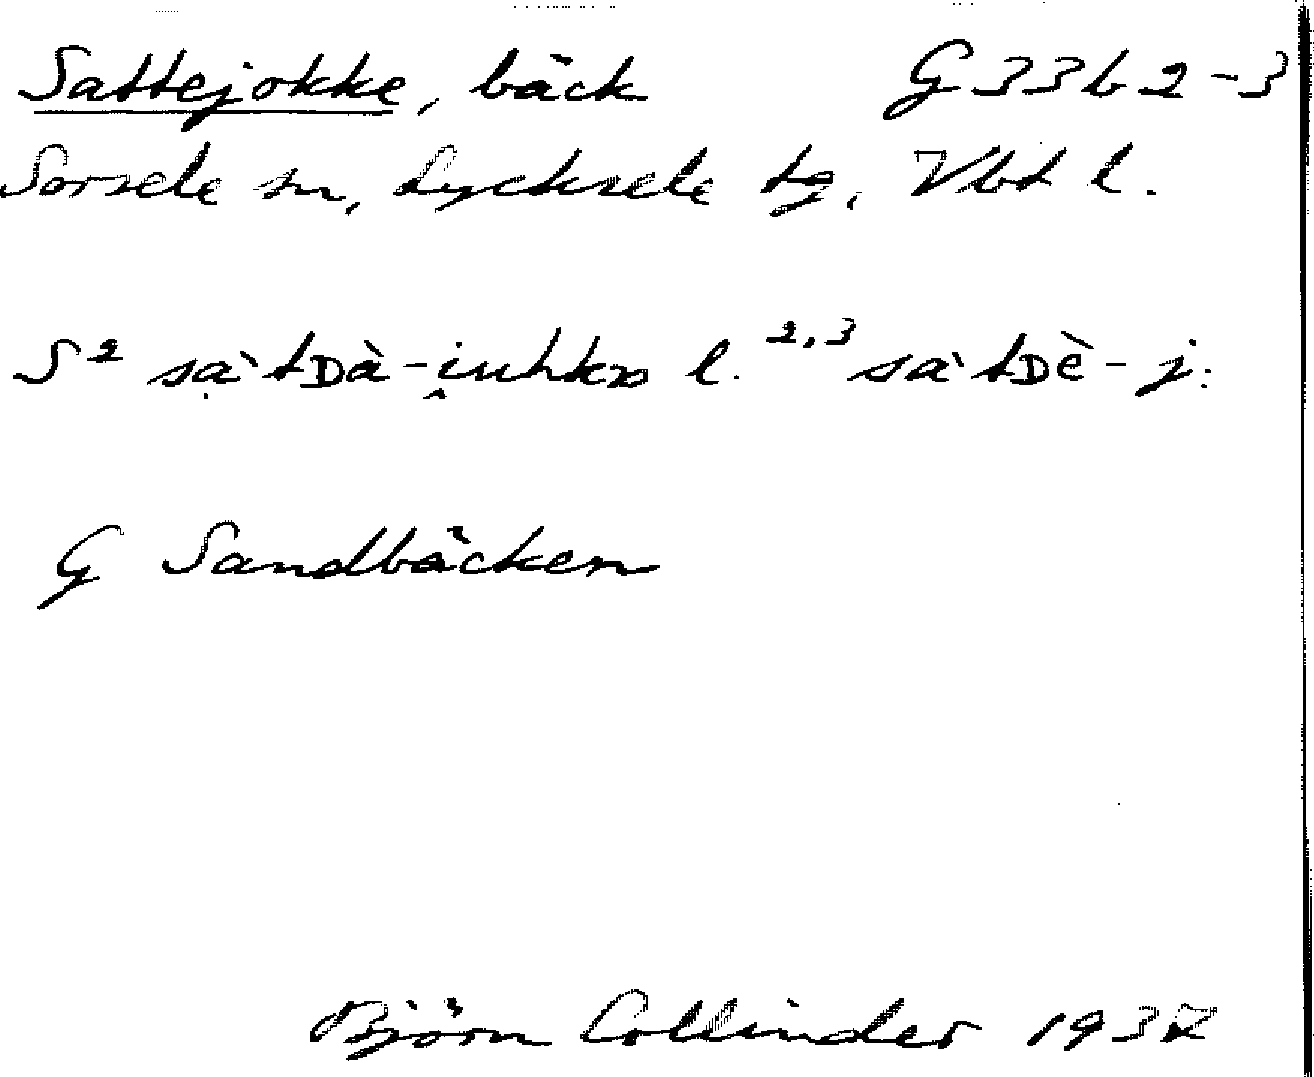 Sattejokke, bäck G 33 b 2-3
Sorsele sn, Lycksele tg, Vbt l.
S² sạ̀tDà- l. ²,³ sàtDè- j:
G Sandbäcken
Björn Collinder 193